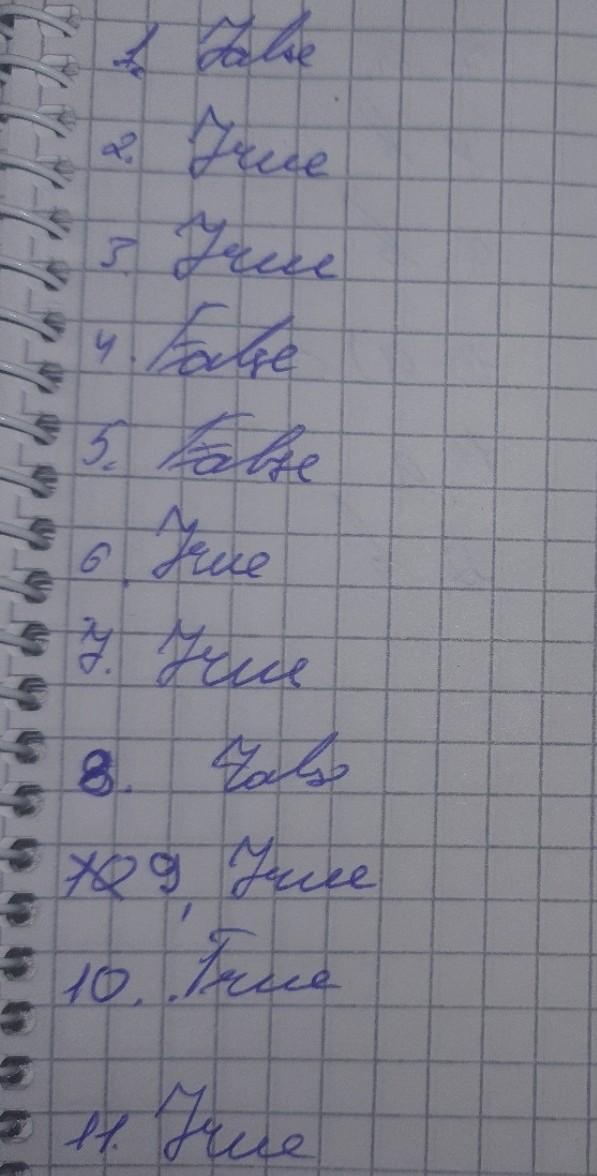 1. False
2. True
3. True
4. False
5. False
6. True
7. True
8. False
9. True
10. True
11. True